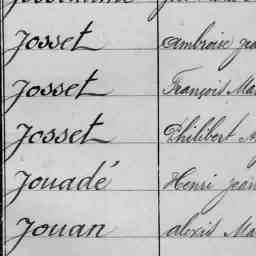 Josset Ambroise
Josset François
Josset Philibert
Jouadé Henri Jean
Jouan Alexis